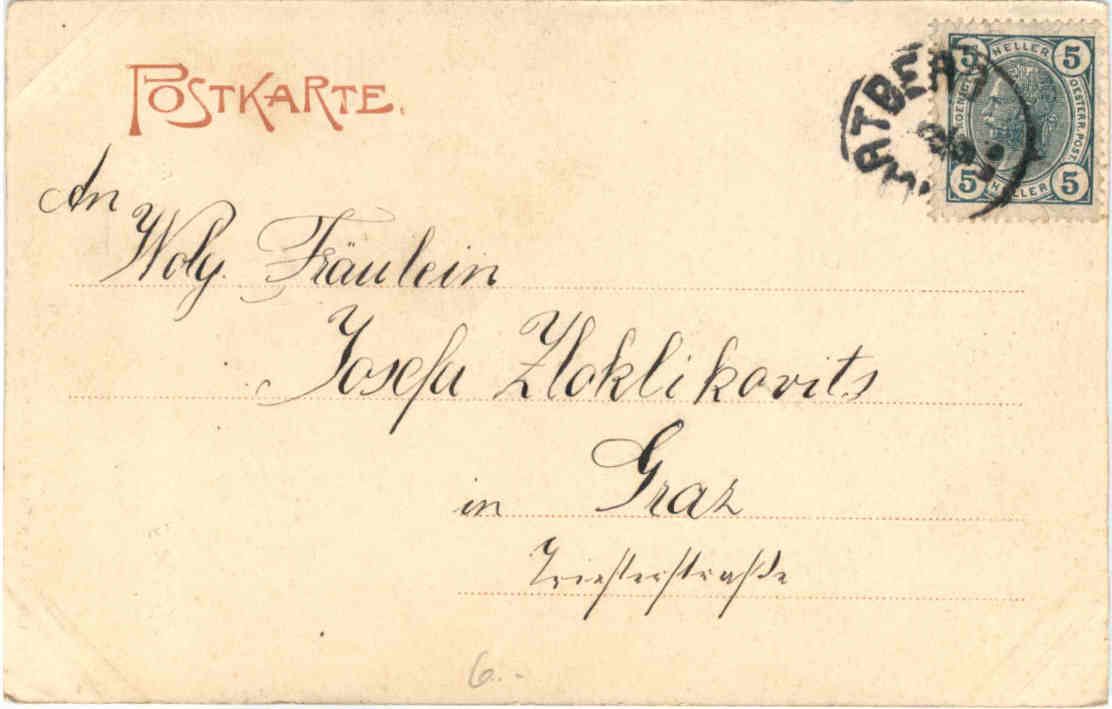 POSTKARTE.
5 HELLER 5
OESTERR. POST.
5 HELLER 5
An
Wolg. Fräulein
Josefa Zloklikovits
in Graz
Triesterstraße
6.-